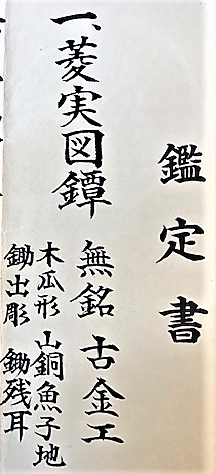 鑑定書
一、菱実図鐔
無銘 古金工
木瓜形 山銅魚子地
鋤出彫 鋤残耳